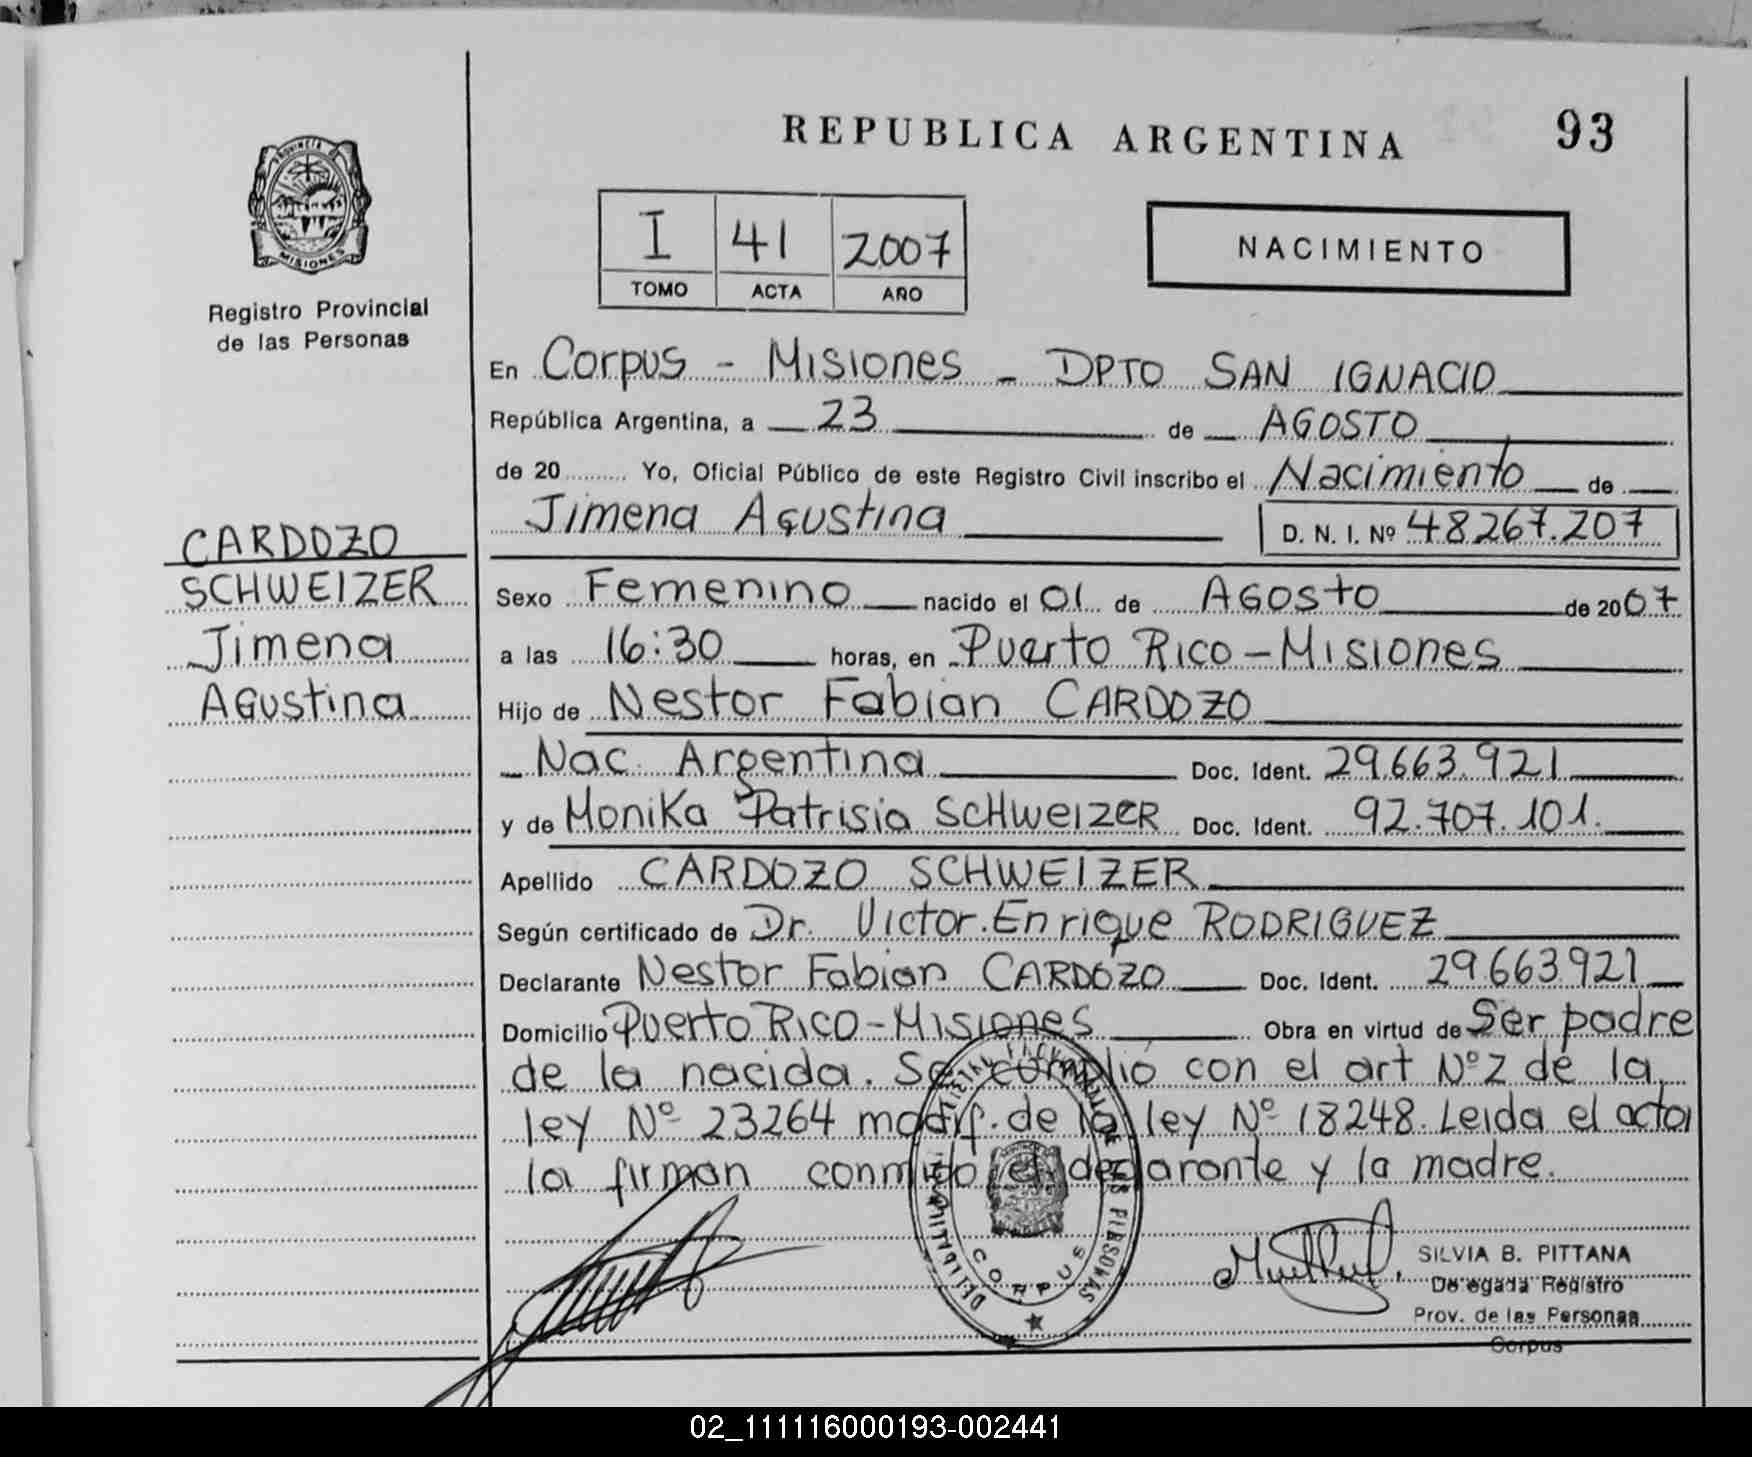 REPUBLICA ARGENTINA
93
PROVINCIA DE
MISIONES
Registro Provincial
de las Personas
I 41 2007
TOMO ACTA AÑO
NACIMIENTO
En Corpus - Misiones - DPTO SAN IGNACIO
República Argentina, a 23 de AGOSTO
de 20......... Yo, Oficial Público de este Registro Civil inscribo el Nacimiento de
Jimena Agustina D. N. I. Nº 48.267.207
CARDOZO
SCHWEIZER
Jimena
Agustina
Sexo Femenino nacido el 01 de AGOSTO de 2007
a las 16:30 horas, en Puerto Rico - Misiones
Hijo de Nestor Fabian CARDOZO
Nac. Argentina Doc. Ident. 29.663.921
y de Monika Patrisia SCHWEIZER Doc. Ident. 92.707.101.
Apellido CARDOZO SCHWEIZER
Según certificado de Dr. Victor Enrique RODRIGUEZ
Declarante Nestor Fabian CARDOZO Doc. Ident. 29.663.921
Domicilio Puerto Rico - Misiones Obra en virtud de Ser padre
de la nacida. Se cumplió con el art Nº 2 de la
ley Nº 23264 modif. de la ley Nº 18248. Leida el acta
la firman conmigo el declarante y la madre.
DE LAS PERSONAS
CORPUS
SILVIA B. PITTANA
Delegada Registro
Prov. de las Personas
Corpus
02_111116000193-002441